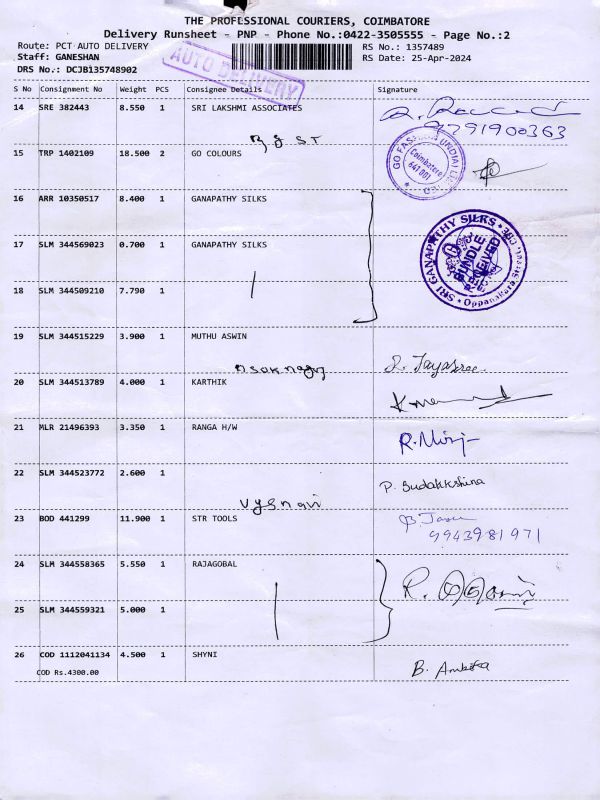 THE PROFESSIONAL COURIERS, COIMBATORE
Delivery Runsheet - PNP - Phone No.:0422-3505555 - Page No.:2
Route: PCT AUTO DELIVERY RS No.: 1357489
Staff: GANESHAN RS Date: 25-Apr-2024
DRS No.: DCJB135748902
AUTO DELIVERY
S No Consignment No Weight PCS Consignee Details Signature
14 SRE 382443 8.550 1 SRI LAKSHMI ASSOCIATES
9791900363
15 TRP 1402109 18.500 2 GO COLOURS
GO FASHION (INDIA) LTD
Coimbatore
641 001
16 ARR 10350517 8.400 1 GANAPATHY SILKS
17 SLM 344569023 0.700 1 GANAPATHY SILKS
SRI GANAPATHY SILKS
BUNDLE
RECEIVED
Oppanakara Street, CBE.
18 SLM 344509210 7.790 1
19 SLM 344515229 3.900 1 MUTHU ASWIN
J. Jayasree.
20 SLM 344513789 4.000 1 KARTHIK
21 MLR 21496393 3.350 1 RANGA H/W
22 SLM 344523772 2.600 1
P. Sudakkshina
vysnavi
23 BOD 441299 11.900 1 STR TOOLS
9943981971
24 SLM 344558365 5.550 1 RAJAGOBAL
25 SLM 344559321 5.000 1
26 COD 1112041134 4.500 1 SHYNI
COD Rs.4300.00
B. Ambika